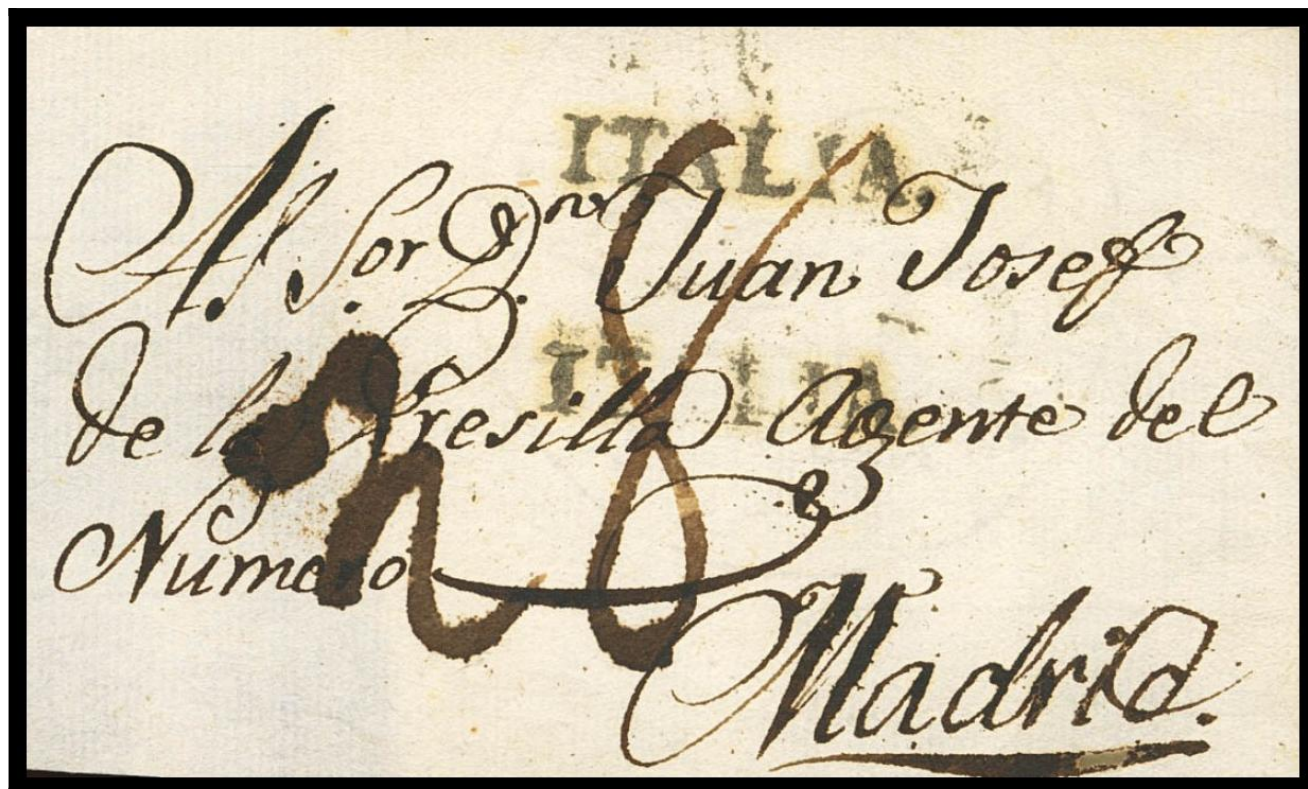 ITALIA.
Al Sor Dn. Juan Josef
ITALIA
de la Presilla Agente del
Numero
Madrid.